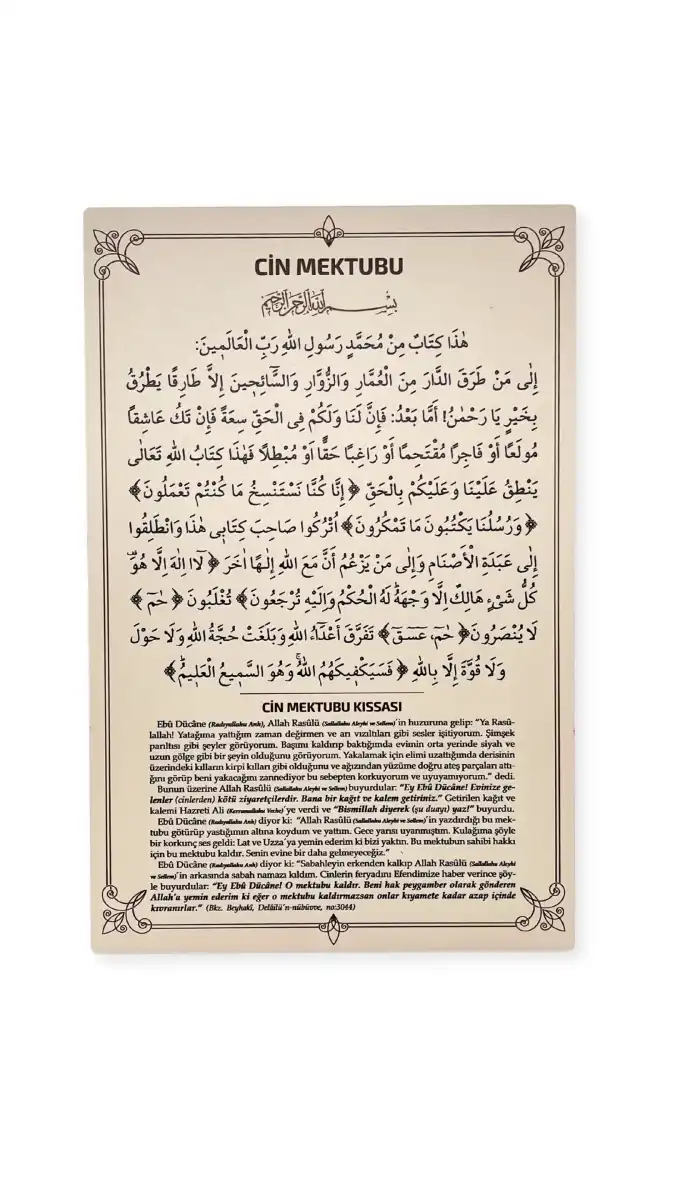 CİN MEKTUBU
بِسْمِ اللهِ الرَّحْمٰنِ الرَّحِيمِ
هٰذَا كِتَابٌ مِنْ مُحَمَّدٍ رَسُولِ اللهِ رَبِّ الْعَالَمِينَ:
إِلٰى مَنْ طَرَقَ الدَّارَ مِنَ الْعُمَّارِ وَالزُّوَّارِ وَالسَّائِحِينَ إِلاَّ طَارِقًا يَطْرُقُ
بِخَيْرٍ يَا رَحْمٰنُ! أَمَّا بَعْدُ: فَإِنَّ لَنَا وَلَكُمْ فِى الْحَقِّ سِعَةً فَإِنْ تَكُ عَاشِقاً
مُولَعًا أَوْ فَاجِراً مُقْتَحِمًا أَوْ رَاغِبًا حَقًّا اَوْ مُبْطِلًا فَهٰذَا كِتَابُ اللهِ تَعَالٰى
يَنْطِقُ عَلَيْنَا وَعَلَيْكُمْ بِالْحَقِّ ﴿إِنَّا كُنَّا نَسْتَنْسِخُ مَا كُنْتُمْ تَعْمَلُونَ﴾
﴿وَرُسُلُنَا يَكْتُبُونَ مَا تَمْكُرُونَ﴾ اُتْرُكُوا صَاحِبَ كِتَابِى هٰذَا وَانْطَلِقُوا
إِلٰى عَبَدَةِ الْأَصْنَامِ وَإِلٰى مَنْ يَزْعُمُ أَنَّ مَعَ اللهِ إِلٰهًا اٰخَرَ ﴿لَا اِلٰهَ اِلَّا هُوَ
كُلُّ شَىْءٍ هَالِكٌ اِلَّا وَجْهَهُ لَهُ الْحُكْمُ وَاِلَيْهِ تُرْجَعُونَ﴾ تُغْلَبُونَ ﴿حٰمٓ﴾
لَا يُنْصَرُونَ ﴿حٰمٓ، عٓسٓقٓ﴾ تَفَرَّقَ أَعْدَاءُ اللهِ وَبَلَغَتْ حُجَّةُ اللهِ وَلَا حَوْلَ
وَلَا قُوَّةَ إِلَّا بِاللهِ ﴿فَسَيَكْفِيكَهُمُ اللهُ وَهُوَ السَّمِيعُ الْعَلِيمُ﴾
CİN MEKTUBU KISSASI
Ebû Dücâne (Radıyallahu Anh), Allah Rasûlü (Sallallahu Aleyhi ve Sellem)'in huzuruna gelip: "Ya Rasû-
lallah! Yatağıma yattığım zaman değirmen ve arı vızıltıları gibi sesler işitiyorum. Şimşek
parıltısı gibi şeyler görüyorum. Başımı kaldırıp baktığımda evimin orta yerinde siyah ve
uzun gölge gibi bir şeyin olduğunu görüyorum. Yakalamak için elimi uzattığımda derisinin
üzerindeki kılların kirpi kılları gibi olduğunu ve ağızından yüzüme doğru ateş parçaları attı-
ğını görüp beni yakacağını zannediyor bu sebepten korkuyorum ve uyuyamıyorum." dedi.
Bunun üzerine Allah Rasûlü (Sallallahu Aleyhi ve Sellem) buyurdular: "Ey Ebû Dücâne! Evinize ge-
lenler (cinlerden) kötü ziyaretçilerdir. Bana bir kağıt ve kalem getiriniz." Getirilen kağıt ve
kalemi Hazreti Ali (Kerramallahu Veche)'ye verdi ve "Bismillah diyerek (şu duayı) yaz!" buyurdu.
Ebû Dücâne (Radıyallahu Anh) diyor ki: "Allah Rasûlü (Sallallahu Aleyhi ve Sellem)'in yazdırdığı bu mek-
tubu götürüp yastığımın altına koydum ve yattım. Gece yarısı uyanmıştım. Kulağıma şöyle
bir korkunç ses geldi: Lat ve Uzza'ya yemin ederim ki bizi yaktın. Bu mektubun sahibi hakkı
için bu mektubu kaldır. Senin evine bir daha gelmeyeceğiz."
Ebû Dücâne (Radıyallahu Anh) diyor ki: "Sabahleyin erkenden kalkıp Allah Rasûlü (Sallallahu Aleyhi
ve Sellem)'in arkasında sabah namazı kıldım. Cinlerin feryadını Efendimize haber verince şöy-
le buyurdular: "Ey Ebû Dücâne! O mektubu kaldır. Beni hak peygamber olarak gönderen
Allah'a yemin ederim ki eğer o mektubu kaldırmazsan onlar kıyamete kadar azap içinde
kıvranırlar." (Bkz. Beyhakî, Delâilü'n-nübüvve, no:3044)